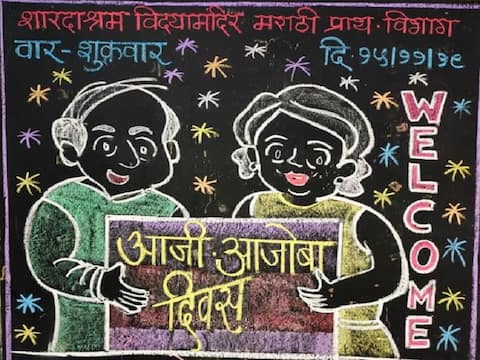 शारदाश्रम विद्यामंदिर मराठी प्राथ. विभाग
वार-शुक्रवार
दि. १५/११/१९
WELCOME
आजी आजोबा
दिवस